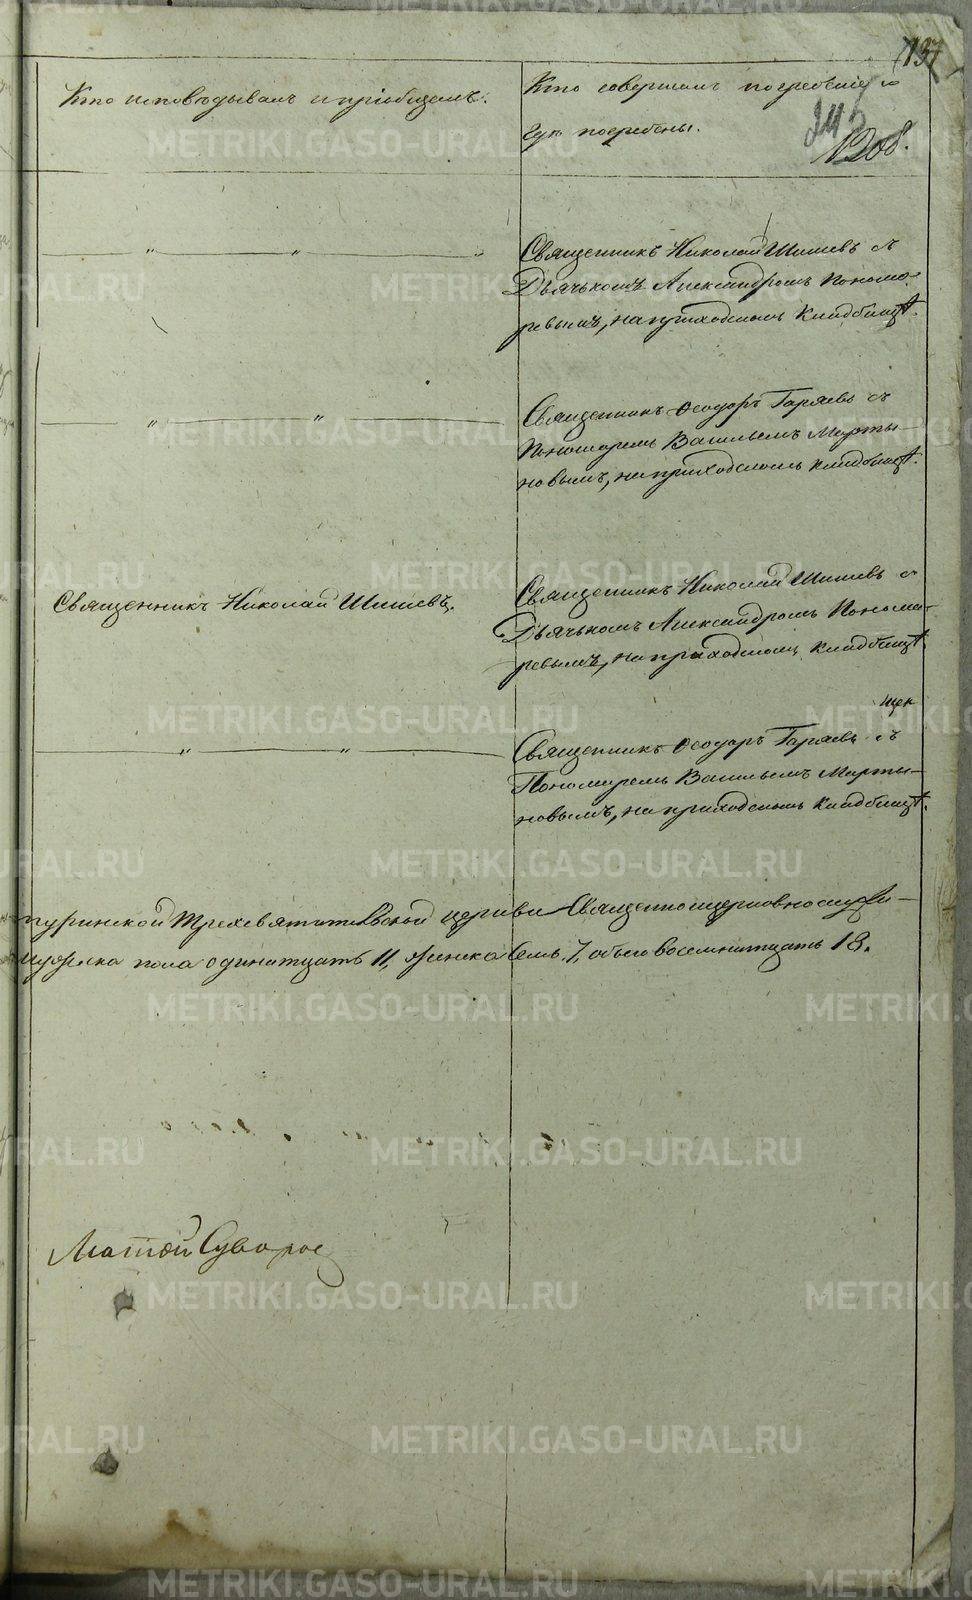 137
Кто исповѣдывалъ и пріобщалъ.
Кто совершалъ погребеніе и
гдѣ погребены.
1208.
Священникъ Николай Шишевъ съ
Дьячькомъ Александромъ Понома-
ревымъ, на приходскомъ кладбищѣ.
Священникъ Ѳеодоръ Гаряевъ съ
Пономаремъ Васильемъ Марты-
новымъ, на приходскомъ кладбищѣ.
Священникъ Николай Шишевъ.
Священникъ Николай Шишевъ съ
Дьячькомъ Александромъ Понома-
ревымъ, на приходскомъ кладбищѣ.
Священникъ Ѳеодоръ Гаряевъ съ
Пономаремъ Васильемъ Марты-
новымъ, на приходскомъ кладбищѣ.
туринской Трехсвятительской церкви Священноцерковнослужи-
мужеска пола одинатцать 11, женска семь 7, обоего восемнатцать 18.
METRIKI.GASO-URAL.RU